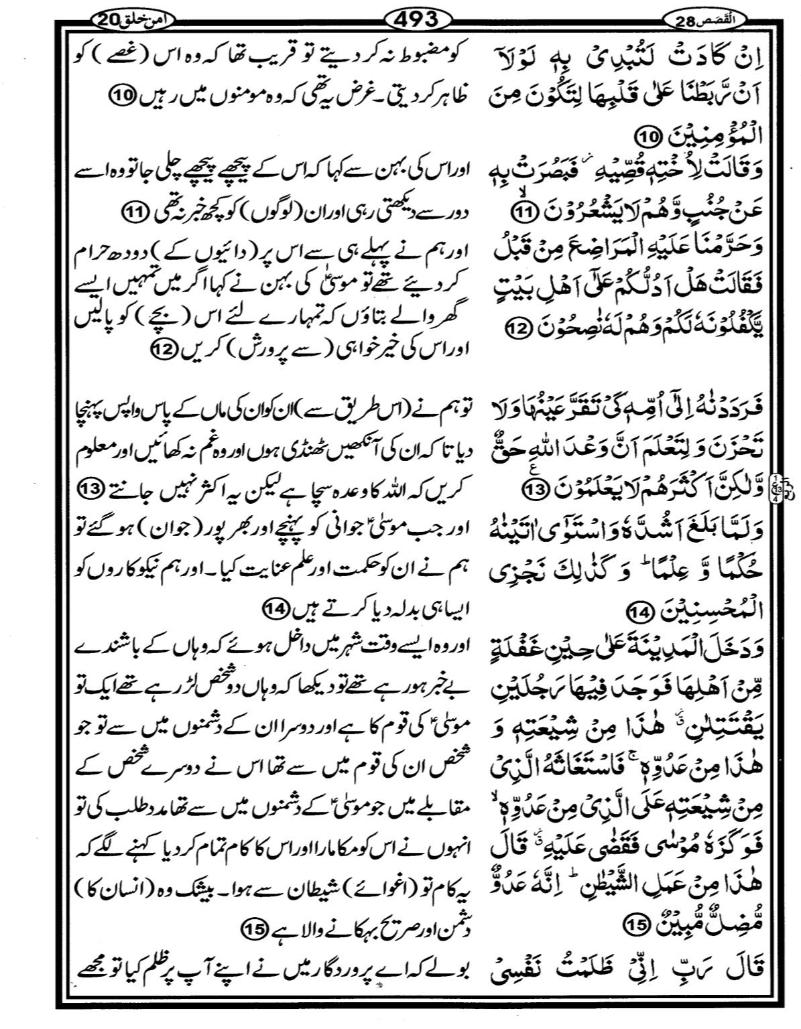 القصص 28
493
امن خلق 20
اِنْ كَادَتْ لَتُبْدِیْ بِهٖ لَوْلَاۤ
اَنْ رَّبَطْنَا عَلٰى قَلْبِهَا لِتَكُوْنَ مِنَ
الْمُؤْمِنِیْنَ 10
وَقَالَتْ لِاُخْتِهٖ قُصِّیْهِ ؗ فَبَصُرَتْ بِهٖ
عَنْ جُنُبٍ وَّهُمْ لَا یَشْعُرُوْنَ ۙ 11
وَحَرَّمْنَا عَلَیْهِ الْمَرَاضِعَ مِنْ قَبْلُ
فَقَالَتْ هَلْ اَدُلُّكُمْ عَلٰۤى اَهْلِ بَیْتٍ
یَّكْفُلُوْنَهٗ لَكُمْ وَهُمْ لَهٗ نٰصِحُوْنَ 12
فَرَدَدْنٰهُ اِلٰۤى اُمِّهٖ كَیْ تَقَرَّ عَیْنُهَا وَلَا
تَحْزَنَ وَ لِتَعْلَمَ اَنَّ وَعْدَ اللّٰهِ حَقٌّ
وَّلٰكِنَّ اَكْثَرَهُمْ لَا یَعْلَمُوْنَ ع 13
الربع
وَلَمَّا بَلَغَ اَشُدَّهٗ وَاسْتَوٰۤى اٰتَیْنٰهُ
حُكْمًا وَّ عِلْمًا ؕ وَ كَذٰلِكَ نَجْزِی
الْمُحْسِنِیْنَ 14
وَدَخَلَ الْمَدِیْنَةَ عَلٰى حِیْنِ غَفْلَةٍ
مِّنْ اَهْلِهَا فَوَجَدَ فِیْهَا رَجُلَیْنِ
یَقْتَتِلٰنِ ۗ هٰذَا مِنْ شِیْعَتِهٖ وَ
هٰذَا مِنْ عَدُوِّهٖ ۚ فَاسْتَغَاثَهُ الَّذِیْ
مِنْ شِیْعَتِهٖ عَلَى الَّذِیْ مِنْ عَدُوِّهٖ ۙ
فَوَكَزَهٗ مُوْسٰى فَقَضٰى عَلَیْهِ ۗ قَالَ
هٰذَا مِنْ عَمَلِ الشَّیْطٰنِ ؕ اِنَّهٗ عَدُوٌّ
مُّضِلٌّ مُّبِیْنٌ 15
قَالَ رَبِّ اِنِّیْ ظَلَمْتُ نَفْسِیْ
کو مضبوط نہ کر دیتے تو قریب تھا کہ وہ اس (غصے) کو
ظاہر کر دیتی۔ غرض یہ تھی کہ وہ مومنوں میں رہیں 10
اور اس کی بہن سے کہا کہ اس کے پیچھے پیچھے چلی جا تو وہ اسے
دور سے دیکھتی رہی اور ان (لوگوں) کو کچھ خبر نہ تھی 11
اور ہم نے پہلے ہی سے اس پر (دائیوں کے) دودھ حرام
کر دیئے تھے تو موسیٰؑ کی بہن نے کہا اگر میں تمہیں ایسے
گھر والے بتاؤں کہ تمہارے لئے اس (بچے) کو پالیں
اور اس کی خیر خواہی (سے پرورش) کریں 12
تو ہم نے (اس طریق سے) ان کو ان کی ماں کے پاس واپس پہنچا
دیا تاکہ ان کی آنکھیں ٹھنڈی ہوں اور وہ غم نہ کھائیں اور معلوم
کریں کہ اللہ کا وعدہ سچا ہے لیکن یہ اکثر نہیں جانتے 13
اور جب موسیٰؑ جوانی کو پہنچے اور بھرپور (جوان) ہو گئے تو
ہم نے ان کو حکمت اور علم عنایت کیا۔ اور ہم نیکو کاروں کو
ایسا ہی بدلہ دیا کرتے ہیں 14
اور وہ ایسے وقت شہر میں داخل ہوئے کہ وہاں کے باشندے
بے خبر ہو رہے تھے تو دیکھا کہ وہاں دو شخص لڑ رہے تھے ایک تو
موسیٰؑ کی قوم کا ہے اور دوسرا ان کے دشمنوں میں سے تو جو
شخص ان کی قوم میں سے تھا اس نے دوسرے شخص کے
مقابلے میں جو موسیٰؑ کے دشمنوں میں سے تھا مدد طلب کی تو
انہوں نے اس کو مکا مارا اور اس کا کام تمام کر دیا کہنے لگے کہ
یہ کام تو (اغوائے) شیطان سے ہوا۔ بیشک وہ (انسان کا)
دشمن اور صریح بہکانے والا ہے 15
بولے کہ اے پروردگار میں نے اپنے آپ پر ظلم کیا تو مجھے